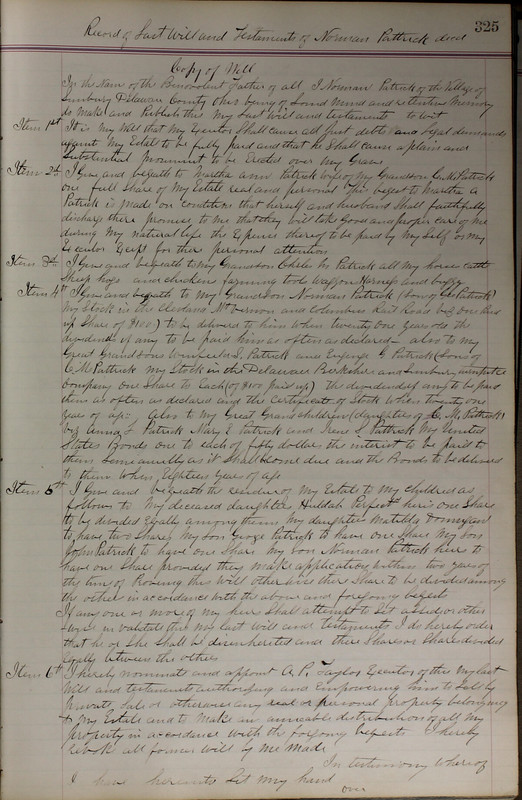 325
Record of Last Will and Testaments of Norman Pattrick decd
Copy of Will
In the Name of the Benevolent Father of all I Norman Patrick of the Village of
Sunbury Delaware County Ohio being of Sound Mind and retentive Memory
do Make and Publish this My Last Will and testaments to wit
Item 1st It is My Will that My Executor Shall cause all Just debts and legal demands
against My Estate to be fully paid and that he Shall cause a plain and
Substantial Monument to be Erected over My Grave
Item 2d I Give and bequeath to Martha Ann Patrick wife of My Grandson C. M. Patrick
one full Share of My Estate real and personal this bequest to Martha A
Patrick is Made on Condition that herself and husband Shall faithfully
discharge there promise to Me that they will take Good and proper care of Me
during My Natural life the Expenses thereof to be paid by My Self or My
Executor Except for there personal attention
Item 3d I Give and bequeath to My Grandson Charles M Patrick all My horse cattle
Sheep hogs and chickens farming tools Waggon Harness and buggy
Item 4th I Give and bequeath to My Grandson Norman Patrick (Son of Patrick)
My Stock in the Cleveland Mt Vernon and Columbus Rail Road viz One paid
up Share of $100) to be delivered to him when twenty one years old the
dividends if any to be paid him as often as declared also to My
Great Grandsons S. Patrick and Eugene G Patrick (Sons of
C. M Pattrick My Stock in the Delaware Berkshire and Sunbury turnpike
Company One Share to Each (of $100 paid up) the dividends if any to be paid
them as often as declared and the Certificate of Stock when twenty one
years of age Also to My Great Grand children (daughters of C. M. Patrick)
viz Anna L Patrick Mary E. Patrick and Irene S. Patrick My United
States Bonds one to each of fifty dollars the interest to be paid to
them Semi anually as it Shall become due and the Bonds to be delivered
to them when Eighteen years of age
Item 5th I Give and bequeath the residue of My Estate to My children as
follows to My deceased daughter Huldah Perfect heirs one Share
to be divided Equally among them My daughter Matilda
to have two Shares My Son George Patrick to have one Share My Son
John Patrick to have one Share My Son Norman Patrick heirs to
have one Share provided they Make application within two years of
the time of Proving this Will other wise there Share to be divided among
the others in accordance with the above and foregoing bequests
If any one or more of my heirs Shall attempt to Set aside or other
wise invalidate this My last will and testaments I do hereby order
that he or She Shall be disenherited and there Shares or Share divided
Equally between the others
Item 6th I hereby nominate and appoint A. P. Taylor Executor of this My last
Will and testaments authorizing and Empowering him to Sell by
private Sale or otherwise any real or personal property belonging
to My Estate and to Make an amicable distribution of all My
property in accordance with the foregoing bequests I hereby
revoke all former will by me made
In testimony whereof
I have hereunto Set My hand